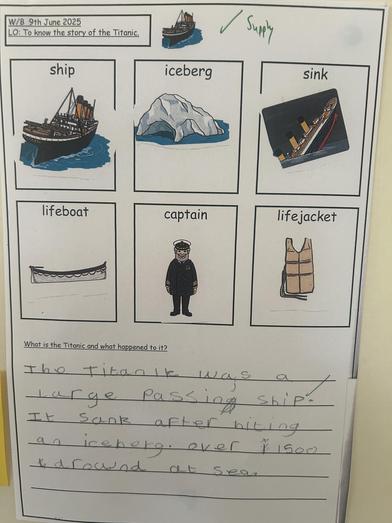 W/B 9th June 2025
LO: To know the story of the Titanic.
✓ Supply
ship
iceberg
sink
lifeboat
captain
lifejacket
What is the Titanic and what happened to it?
The Titanik was a
large passing ship.
It sank after hiting
an iceberg. over 1500
dround at sea.